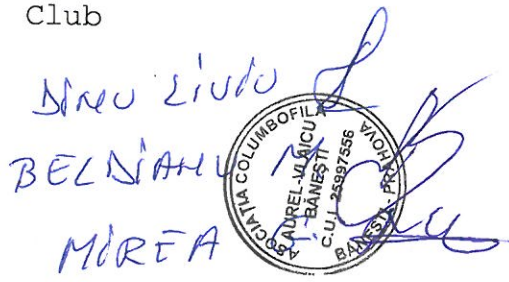 Club
DINU LIVIU
BELDIANU M
MIREA
ASOCIAȚIA COLUMBOFILA
AUREL-VLAICU
BĂNEȘTI
C.U.I. 25997556
BĂNEȘTI - PRAHOVA